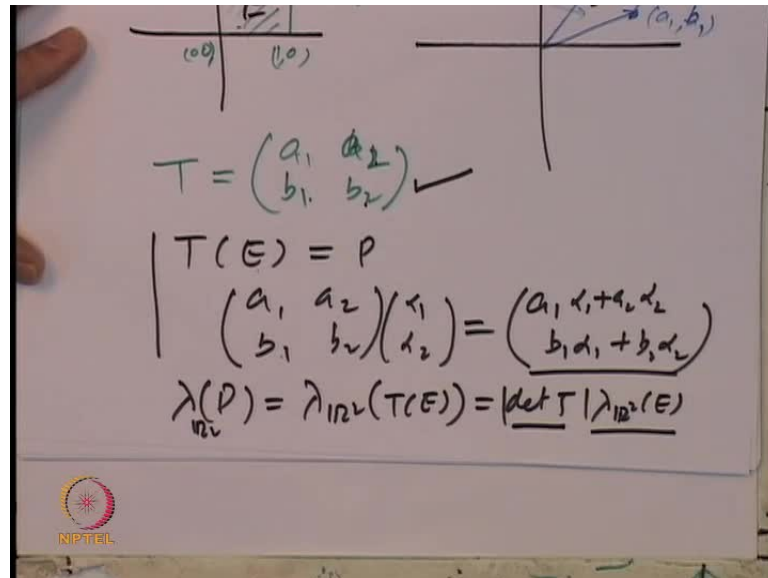 (a₁, b₁)
(00) (1,0)
T = (a₁ a₂
b₁. b₂)
T(E) = P
(a₁ a₂ (α₁ = (a₁α₁+a₂α₂
b₁ b₂) α₂) b₁α₁+b₂α₂)
λ_ℝ²(P) = λ_ℝ²(T(E)) = |det T| λ_ℝ²(E)
NPTEL